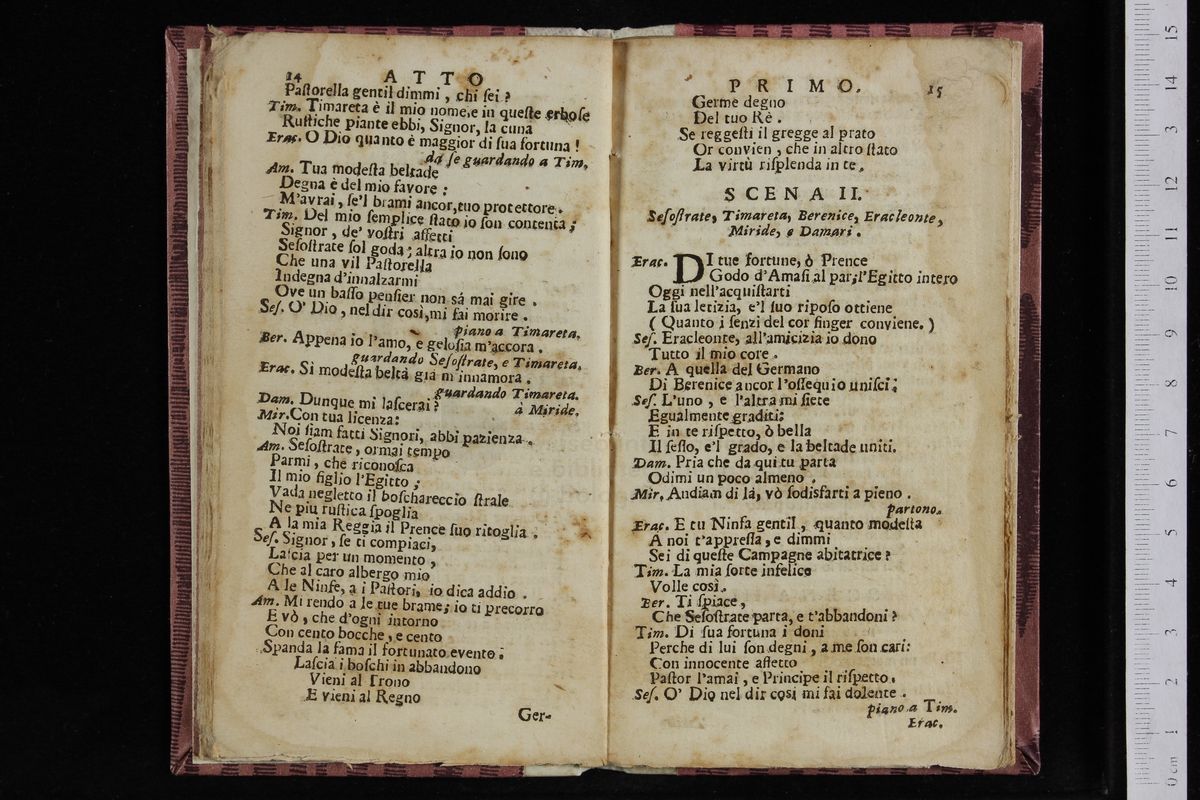 14 ATTO
Paſtorella gentil dimmi, chi ſei?
Tim. Timareta è il mio nome,e in queſte erboſe
Ruſtiche piante ebbi, Signor, la cuna
Erac. O Dio quanto è maggior di ſua fortuna!
da ſe guardando a Tim.
Am. Tua modeſta beltade
Degna è del mio favore:
M'avrai, ſe'l brami ancor,tuo protettore.
Tim. Del mio ſemplice ſtato io ſon contenta;
Signor, de' voſtri affetti
Seſoſtrate ſol goda; altra io non ſono
Che una vil Paſtorella
Indegna d'innalzarmi
Ove un baſſo penſier non sá mai gire.
Seſ. O' Dio, nel dir così,mi fai morire.
piano a Timareta.
Ber. Appena io l'amo, e geloſia m'accora.
guardando Seſoſtrate, e Timareta.
Erac. Sì modeſta beltà già m'innamora.
guardando Timareta.
Dam. Dunque mi laſcerai?
à Miride.
Mir.Con tua licenza:
Noi ſiam fatti Signori, abbi pazienza.
Am. Seſoſtrate, ormai tempo
Parmi, che riconoſca
Il mio figlio l'Egitto;
Vada negletto il boſchareccio ſtrale
Ne più ruſtica ſpoglia
A la mia Reggia il Prence ſuo ritoglia.
Seſ. Signor, ſe ti compiaci,
Laſcia per un momento,
Che al caro albergo mio
A le Ninfe, a i Paſtori, io dica addio.
Am. Mi rendo a le tue brame; io ti precorro
E vò, che d'ogni intorno
Con cento bocche, e cento
Spanda la fama il fortunato evento.
Laſcia i boſchi in abbandono
Vieni al Trono
E vieni al Regno
Ger-
PRIMO. 15
Germe degno
Del tuo Rè.
Se reggeſti il gregge al prato
Or convien, che in altro ſtato
La virtù riſplenda in te.
SCENA II.
Seſoſtrate, Timareta, Berenice, Eracleonte,
Miride, e Damari.
Erac. DI tue fortune, ò Prence
Godo d'Amaſi al par;l'Egitto intero
Oggi nell'acquiſtarti
La ſua letizia, e'l ſuo ripoſo ottiene
( Quanto i ſenzi del cor finger conviene. )
Seſ. Eracleonte, all'amicizia io dono
Tutto il mio core.
Ber. A quella del Germano
Di Berenice ancor l'oſſequio uniſci;
Seſ. L'uno, e l'altra mi ſiete
Egualmente graditi:
E in te riſpetto, ò bella
Il ſeſſo, e'l grado, e la beltade uniti.
Dam. Pria che da qui tu parta
Odimi un poco almeno.
Mir. Andiam di lá, vò ſodisfarti a pieno.
partono.
Erac. E tu Ninfa gentil, quanto modeſta
A noi t'appreſſa, e dimmi
Sei di queſte Campagne abitatrice?
Tim. La mia ſorte infelice
Volle così.
Ber. Ti ſpiace,
Che Seſoſtrate parta, e t'abbandoni?
Tim. Di ſua fortuna i doni
Perche di lui ſon degni, a me ſon cari:
Con innocente affetto
Paſtor l'amai, e Principe il riſpetto.
Seſ. O' Dio nel dir così mi fai dolente.
piano a Tim.
Erac.
15
14
13
12
11
10
9
8
7
6
5
4
3
2
1
0 cm